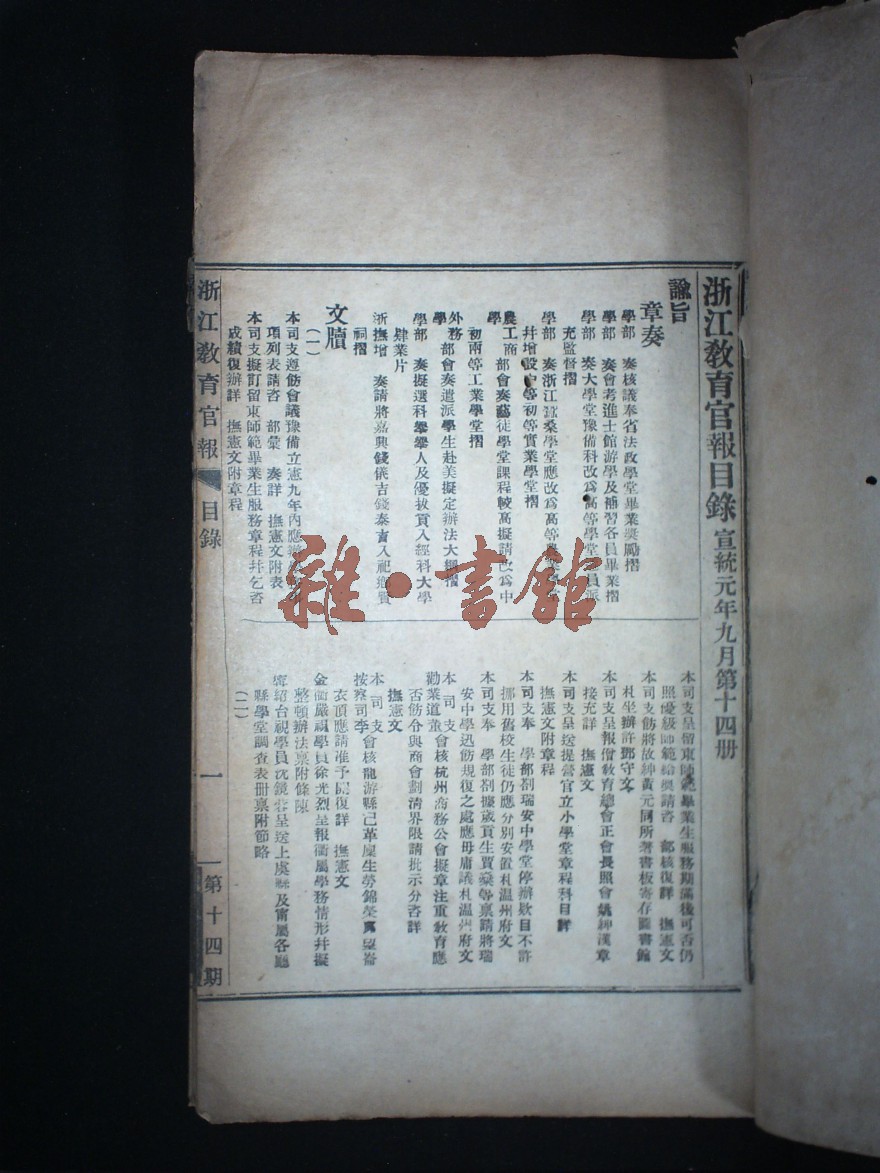 浙江教育官報目錄 宣統元年九月第十四册
諭旨
章奏
學部 奏核議奉省法政學堂畢業獎勵摺
學部 奏會考進士館游學及補習各員畢業摺
學部 奏大學堂豫備科改爲高等學堂 員派
充監督摺
學部 奏浙江蠶桑學堂應改爲高等
幷增設中等初等實業學堂摺
農工商學 部會奏藝徒學堂課程較高擬請改爲中
初兩等工業學堂摺
外務學 部會奏遣派學生赴美擬定辦法大綱摺
學部 奏擬選科舉舉人及優拔貢入經科大學
肄業片
浙撫增 奏請將嘉興錢儀吉錢泰吉入祀鄕賢
祠摺
文牘
(一)
本司支遵飭會議豫備立憲九年內應
項列表請咨 部彙 奏詳 撫憲文附表
本司支擬訂留東師範畢業生服務章程幷乞咨
成績復辦詳 撫憲文附章程
本司支呈留東師範畢業生服務期滿後可否仍
照優級師範給獎請咨 部核復詳 撫憲文
本司支飭將故紳黃元同所著書板寄存圖書館
札坐辦許鄧守文
本司支呈報僧敎育總會正會長照會 紳漢章
接充詳 撫憲文
本司支呈送提督官立小學堂章程科目詳
撫憲文附章程
本司支奉 學部劄瑞安中學堂停辦欵目不許
挪用舊校生徒仍應分別安置札温州府文
本司支奉 學部劄據歲貢生賈燊等禀請將瑞
安中學迅飭規復之處應毋庸議札温州府文
本司支勸業道董會核杭州商務公會擬章注重敎育應
否飭分與商會劃淸界限請批示分咨詳
撫憲文
本司支按察司李會核龍游縣已革廩生勞錦榮 崙
衣頂應請准予開復詳 撫憲文
金衢嚴視學員徐光烈呈報衢屬學務情形幷擬
整頓辦法禀附條陳
寧紹台視學員沈鏡蓉呈送上虞縣及甯屬各廳
縣學堂調查表册禀附節略
(二)
浙江敎育官報
目錄
一
第十四期
雜·書館